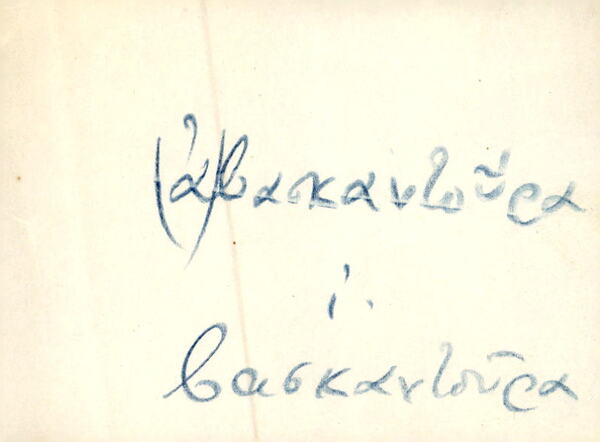 (ἀ)βασκαντοῦρα
ἡ.
βασκαντοῦρα